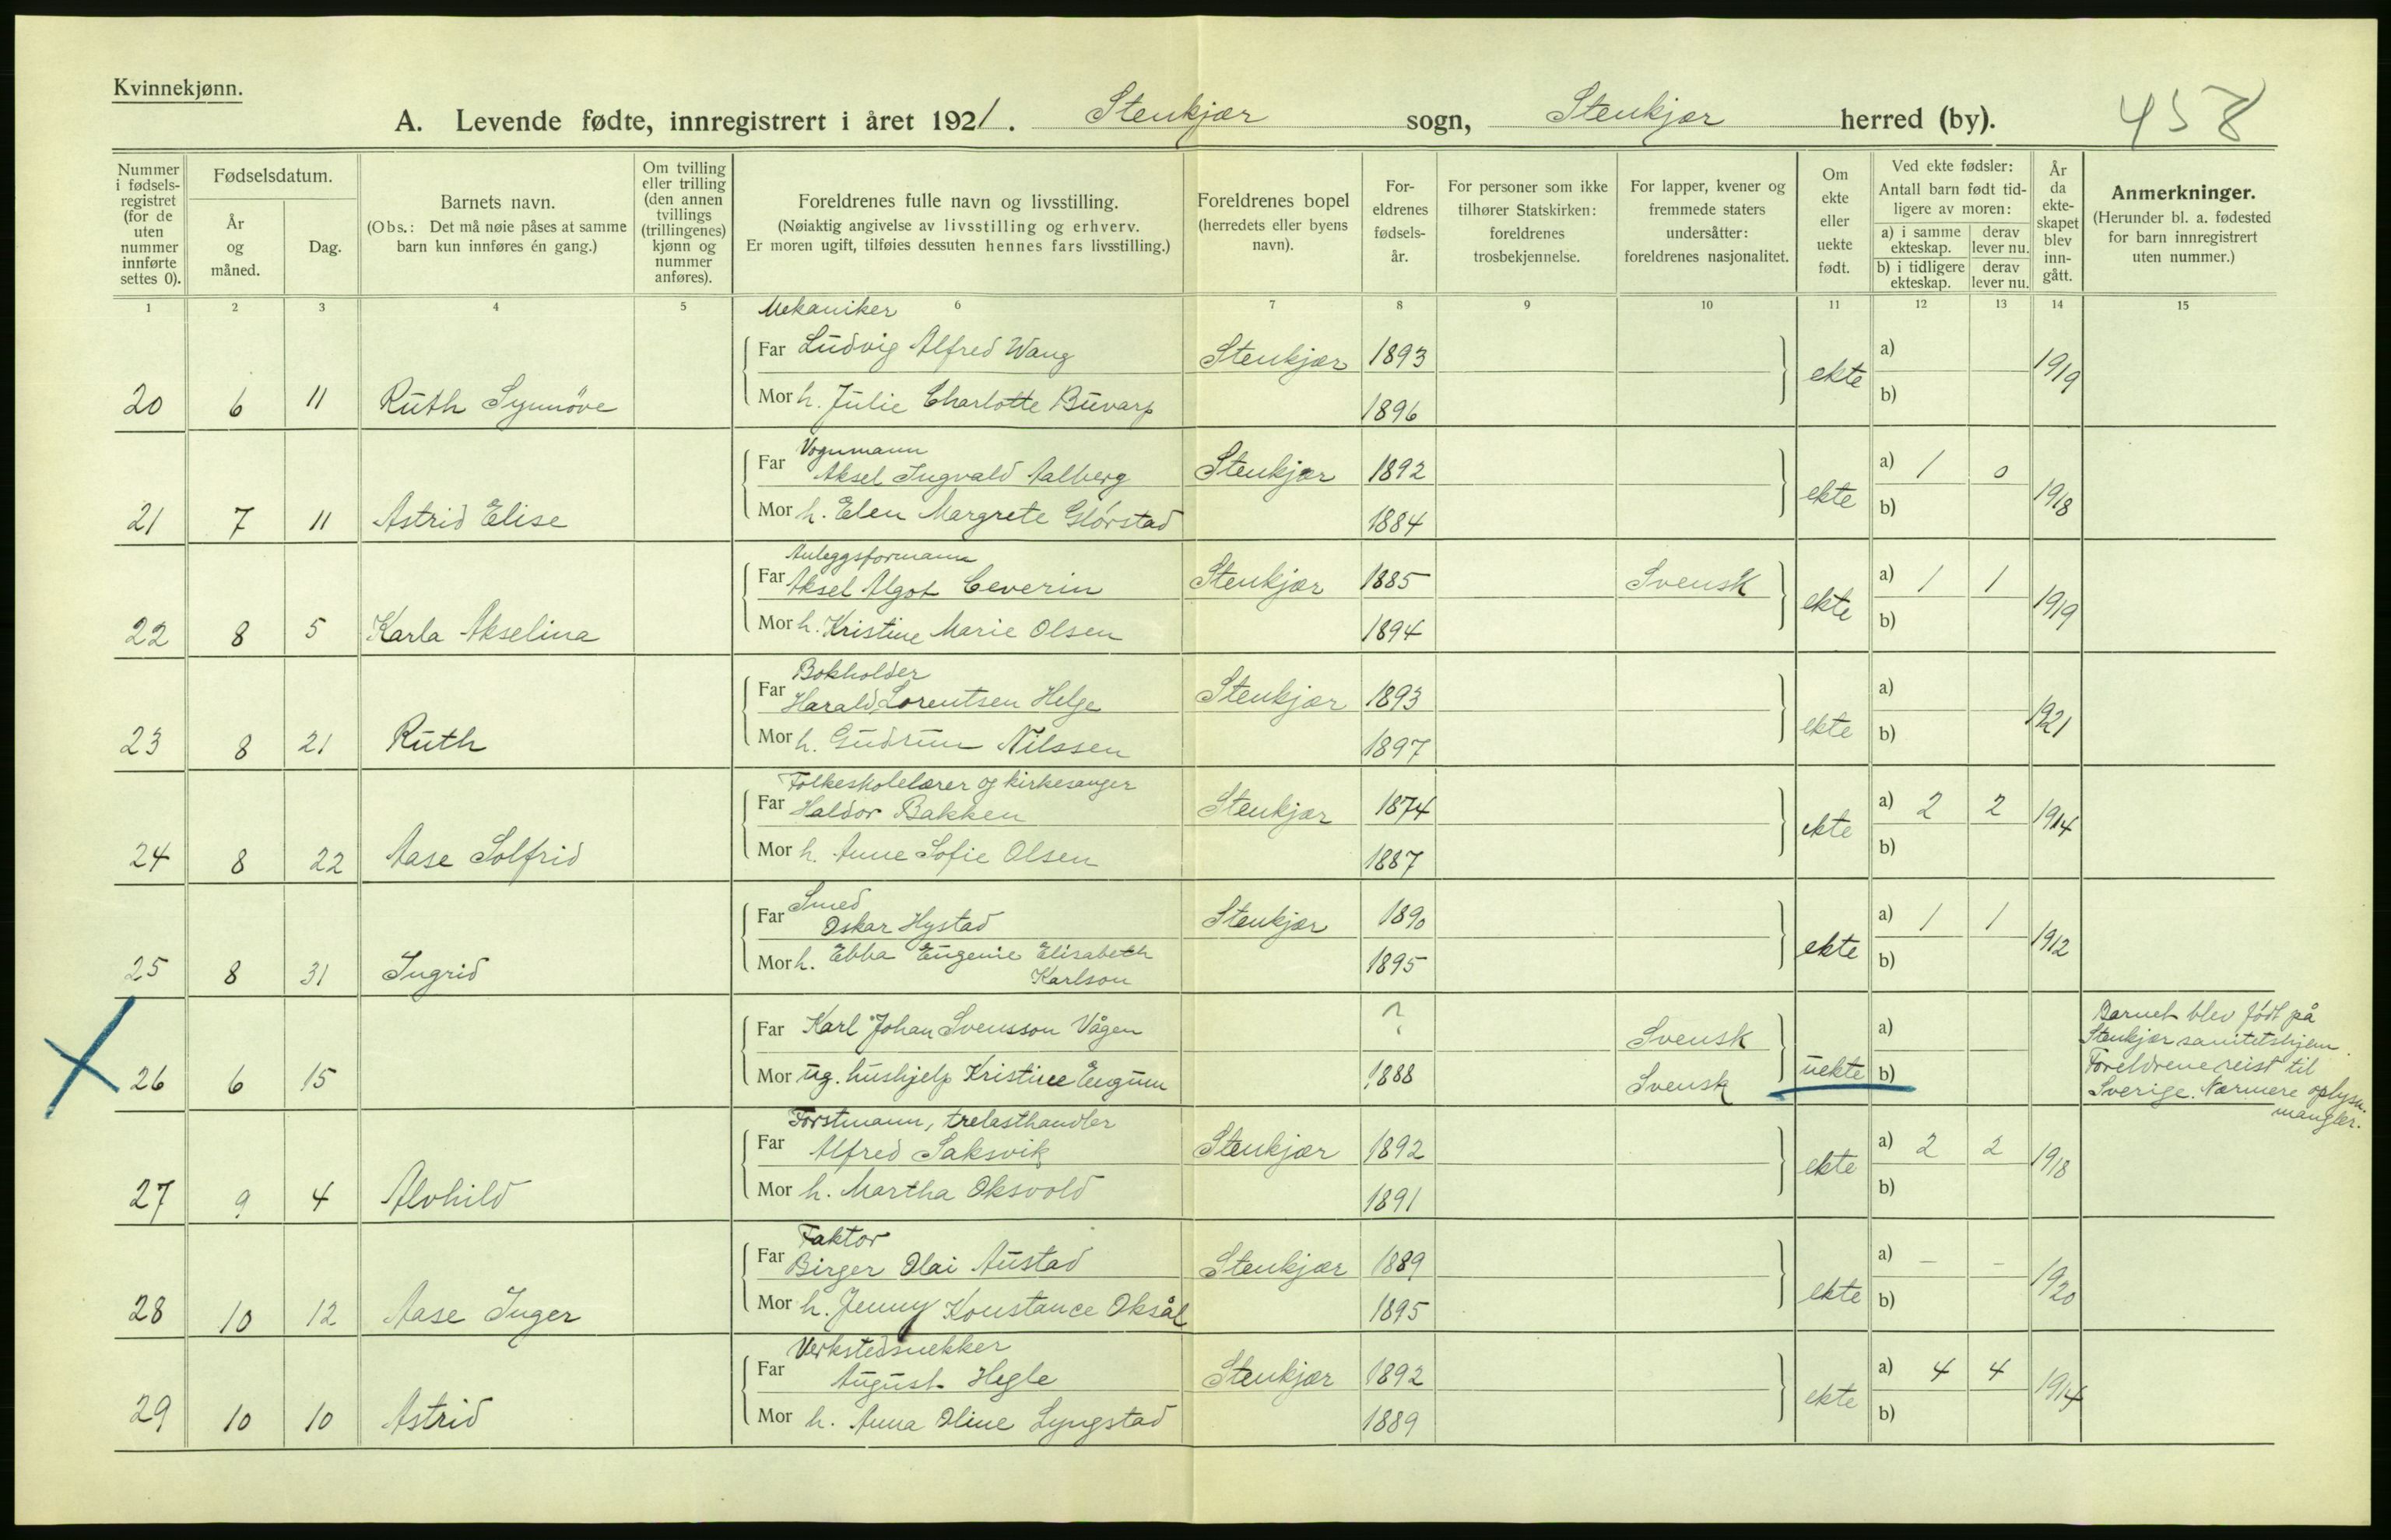 Kvinnekjønn.
A. Levende fødte, innregistrert i året 1921. Stenkjær sogn, Stenkjær herred (by). 458
Nummer i fødsels-registret (for de uten nummer innførte settes 0).
Fødselsdatum.
År og måned.
Dag.
Barnets navn.
(Obs.: Det må nøie påses at samme barn kun innføres én gang.)
Om tvilling eller trilling (den annen tvillings (trillingenes) kjønn og nummer anføres).
Foreldrenes fulle navn og livsstilling.
(Nøiaktig angivelse av livsstilling og erhverv.
Er moren ugift, tilføies dessuten hennes fars livsstilling.)
Foreldrenes bopel (herredets eller byens navn).
For-eldrenes fødsels-år.
For personer som ikke tilhører Statskirken: foreldrenes trosbekjennelse.
For lapper, kvener og fremmede staters undersåtter: foreldrenes nasjonalitet.
Om ekte eller uekte født.
Ved ekte fødsler:
Antall barn født tid-ligere av moren:
a) i samme ekteskap. derav lever nu.
b) i tidligere ekteskap. derav lever nu.
År da ekte-skapet blev inn-gått.
Anmerkninger.
(Herunder bl. a. fødested for barn innregistrert uten nummer.)
1 2 3 4 5 6 7 8 9 10 11 12 13 14 15
Mekaniker
Far Ludvig Alfred Wang Stenkjær 1893 a)
20 6 11 Ruth Synnöve Mor h. Julie Charlotte Buvarp 1896 ekte b) 1919
Vognmann
Far Aksel Ingvald Aalberg Stenkjær 1892 a) 1 0
21 7 11 Astrid Elise Mor h. Elen Margrete Glörstad 1884 ekte b) 1918
Anleggsformann
Far Aksel Algot Ceverin Stenkjær 1885 Svensk a) 1 1
22 8 5 Karla Akselina Mor h. Kristine Marie Olsen 1894 ekte b) 1919
Bokholder
Far Harald Lorentsen Helge Stenkjær 1893 a)
23 8 21 Ruth Mor h. Gudrun Nilssen 1897 ekte b) 1921
Folkeskolelærer og kirkesanger
Far Haldor Bakken Stenkjær 1874 a) 2 2
24 8 22 Aase Solfrid Mor h. Anne Sofie Olsen 1887 ekte b) 1914
Smed
Far Oskar Hystad Stenkjær 1890 a) 1 1
25 8 31 Ingrid Mor h. Ebba Eugenie Elisabeth Karlson 1895 ekte b) 1912
Far Karl Johan Svensson Vågen ? Svensk a)
26 6 15 Mor ug. hushjelp Kristine Engum 1888 Svensk uekte b)
Barnet blev födt på
Stenkjær sanitetshjem.
Foreldrene reist til
Sverige. Nærmere oplysn.
mangler.
Forstmann, trelasthandler
Far Alfred Saksvik Stenkjær 1892 a) 2 2
27 9 4 Alvhild Mor h. Martha Oksvold 1891 ekte b) 1918
Faktor
Far Birger Olai Austad Stenkjær 1889 a) – –
28 10 12 Aase Inger Mor h. Jenny Konstance Oksål 1895 ekte b) 1920
Verkstedsnekker
Far August Hegle Stenkjær 1892 a) 4 4
29 10 10 Astrid Mor h. Anna Oline Lyngstad 1889 ekte b) 1914